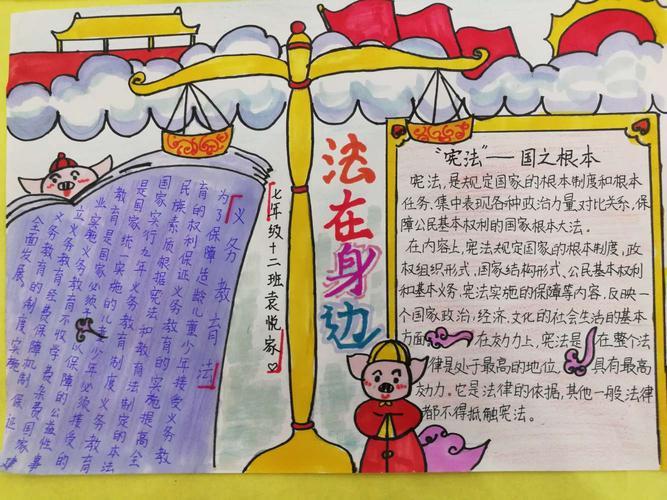 法在身边
七年级十二班袁悦家
义务教育法
为了保障适龄儿童少年接受义务教
育的权利保证义务教育的实施提高全
民族素质根据宪法和教育法制定的本法
国家实行九年义务教育制度义务教育
是国家统一实施的儿童少年必须接受的
教育是国家必须予以保障的公益性事
业实施义务教育不收学费杂费国家建
立义务教育经费保障机制保证
义务教育的制度实施
全面发展
"宪法"——国之根本
宪法,是规定国家的根本制度和根本
任务.集中表现各种政治力量对比关系,保
障公民基本权利的国家根本大法。
在内容上,宪法规定国家的根本制度,政
权组织形式,国家结构形式、公民基本权利
和基本义务,宪法实施的保障等内容,反映一
个国家政治,经济,文化的社会生活的基本
方面 在效力上,宪法是 在整个法
律是处于最高的地位, 具有最高
效力。它是法律的依据,其他一般法律
都不得抵触宪法。